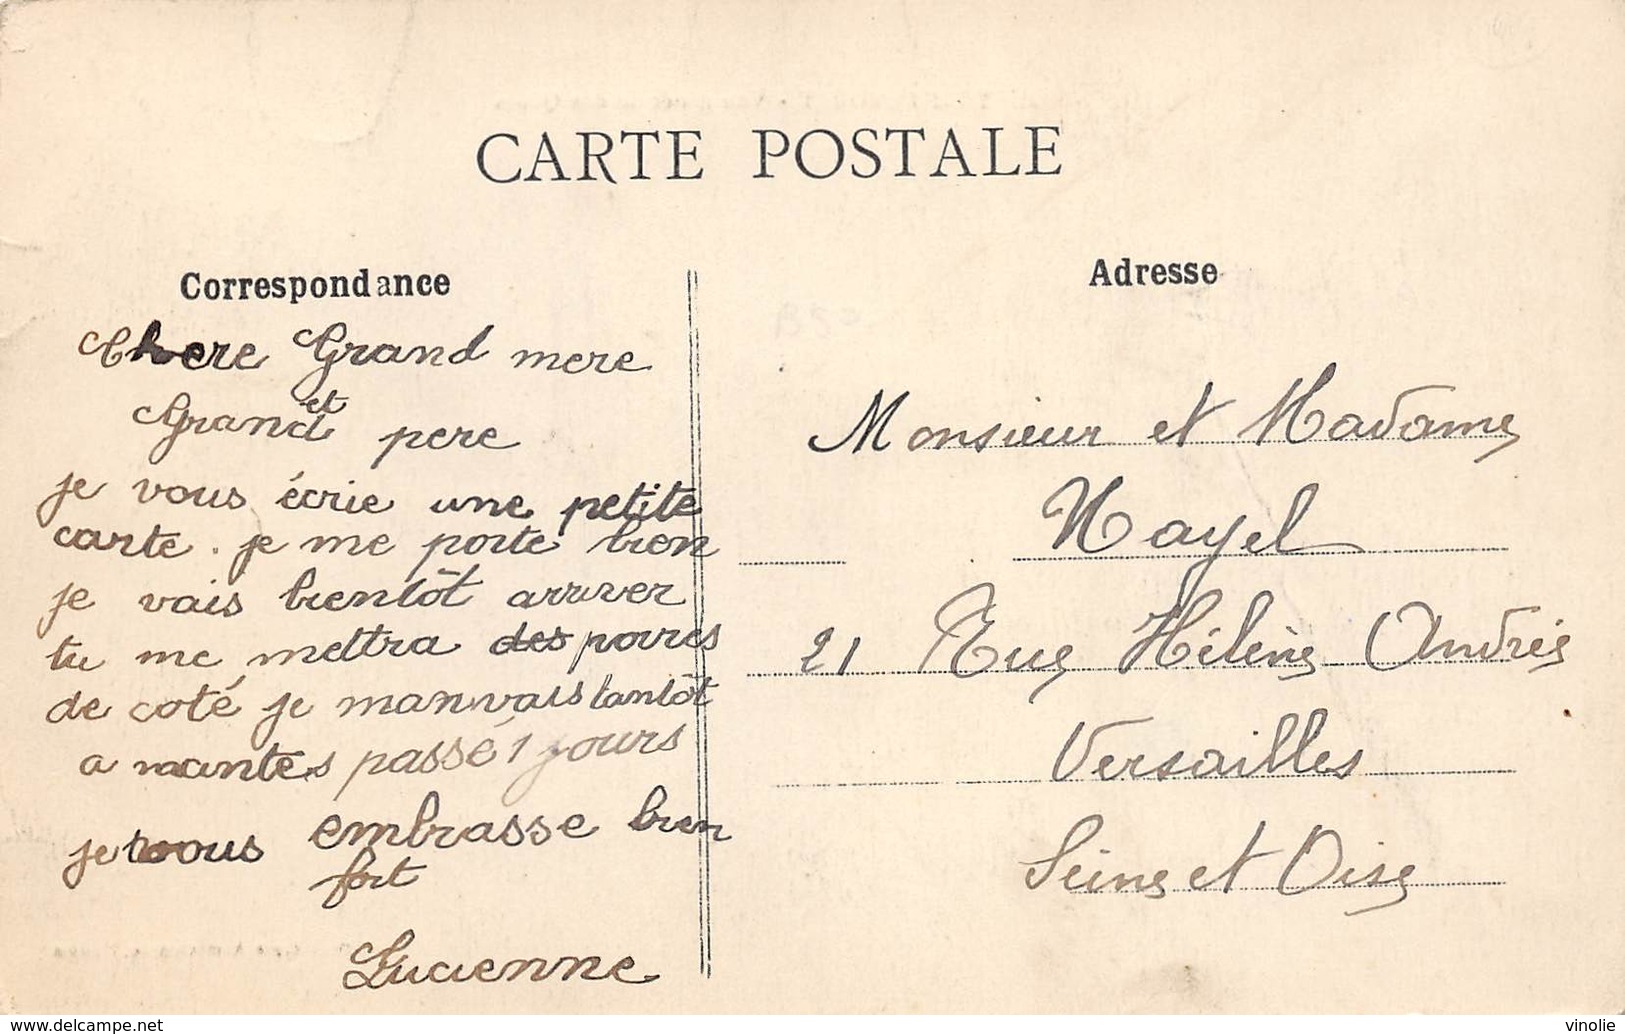 CARTE POSTALE
Correspondance
Chere Grand mere
et
Grand pere
je vous écrie une petite
carte. je me porte bien
je vais bientôt arriver
tu me mettra des poires
de coté je manvais tantôt
a mantes passé 1 jours
je vous embrasse bien
fort
Lucienne
Adresse
Monsieur et Madame
Nayel
21 Rue Hélène Andrée
Versailles
Seine et Oise
www.delcampe.net
vinolie